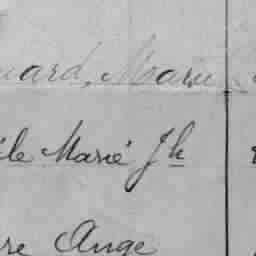 uard, Marie
ile Marie Jh
re Ange